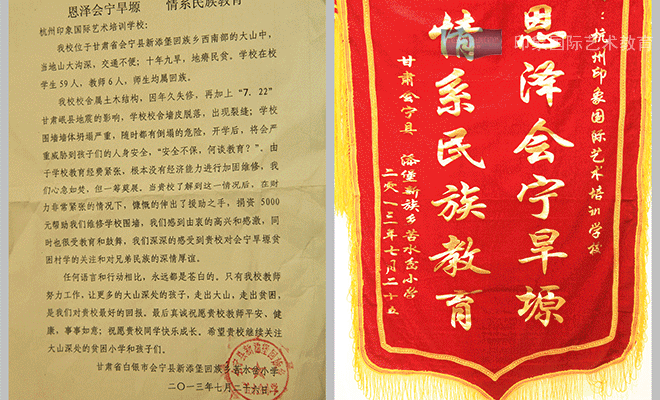 恩泽会宁旱塬 情系民族教育
杭州印象国际艺术培训学校：
我校位于甘肃省会宁县新添堡回族乡西南部的大山中，
当地山大沟深，交通不便；十年九旱，地瘠民贫。学校在校
学生59人，教师6人，师生均属回族。
我校校舍属土木结构，因年久失修，再加上“7.22”
甘肃岷县地震的影响，学校校舍墙皮脱落，出现裂缝；学校
围墙墙体坍塌严重，随时都有倒塌的危险，开学后，将会严
重威胁到孩子们的人身安全，“安全不保，何谈教育？”、由
于学校教育经费紧张，根本没有经济能力进行加固维修，我
们心急如焚，但一筹莫展。当贵校了解到这一情况后，在财
力非常紧张的情况下，慷慨的伸出了援助之手，捐资5000
元帮助我们维修学校围墙，我们感到由衷的高兴和感激，同
时也很受教育和鼓舞，我们深深的感受到贵校对会宁旱塬贫
困村学的关注和对兄弟民族的深情厚谊。
任何语言和行动相比，永远都是苍白的。只有我校教师
努力工作，让更多的大山深处的孩子，走出大山，走出贫困，
是我们对贵校最好的回报。最后真诚祝愿贵校教师平安、健
康，事事如意；祝愿贵校同学快乐成长。希望贵校继续关注
大山深处的贫困小学和孩子们。
甘肃省白银市会宁县新添堡回族乡苦水岔小学
二〇一三年七月二十六日
：杭州印象国际艺术培训学校
恩泽会宁旱塬
情系民族教育
甘肃会宁县 添堡新族乡苦水岔小学
二〇一三年七月二十五
印象国际艺术教育